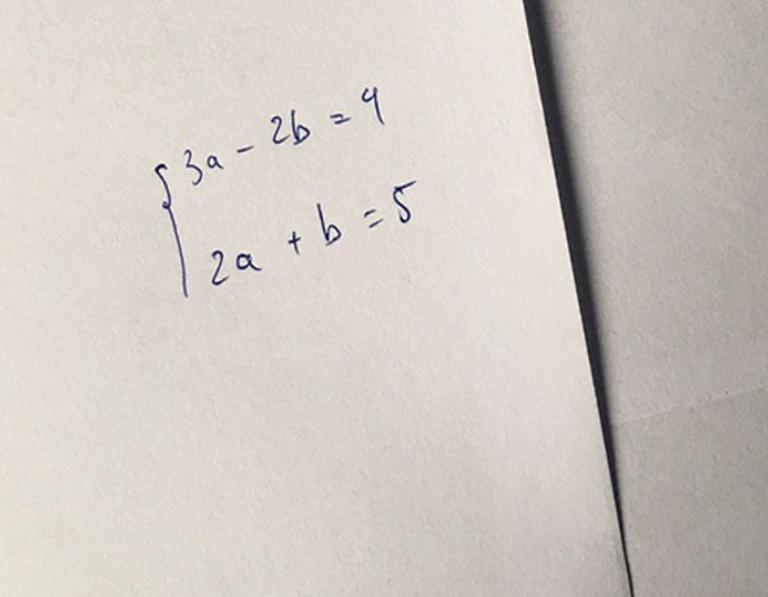 3a - 2b = 4
2a + b = 5